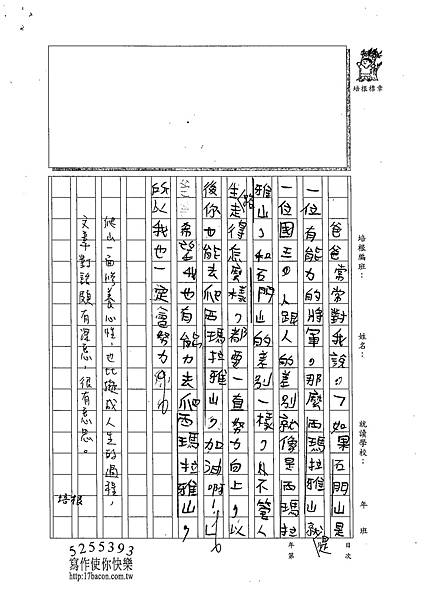 培根標章
培根編班：
姓名：
就讀學校：
年 班
爸爸常常對我說，「如果五門山是
一位有能力的將軍，那麼西瑪拉雅山就是
一位國王，人跟人的差別就像是西瑪拉
雅山，和五門山的差別一樣，不管人
生路走得怎麼樣，都要一直努力向上，以
後你也能去爬西瑪拉雅山，加油啊！」
希望我也有能力去爬西瑪拉雅山，
所以我也一定會努力
爬山一面修養心性，也比擬成人生的過程，
文章對話頗有深意，很有意思。
培根
年 月 日
第 次
5255393
寫作使你快樂
http://17bacon.com.tw